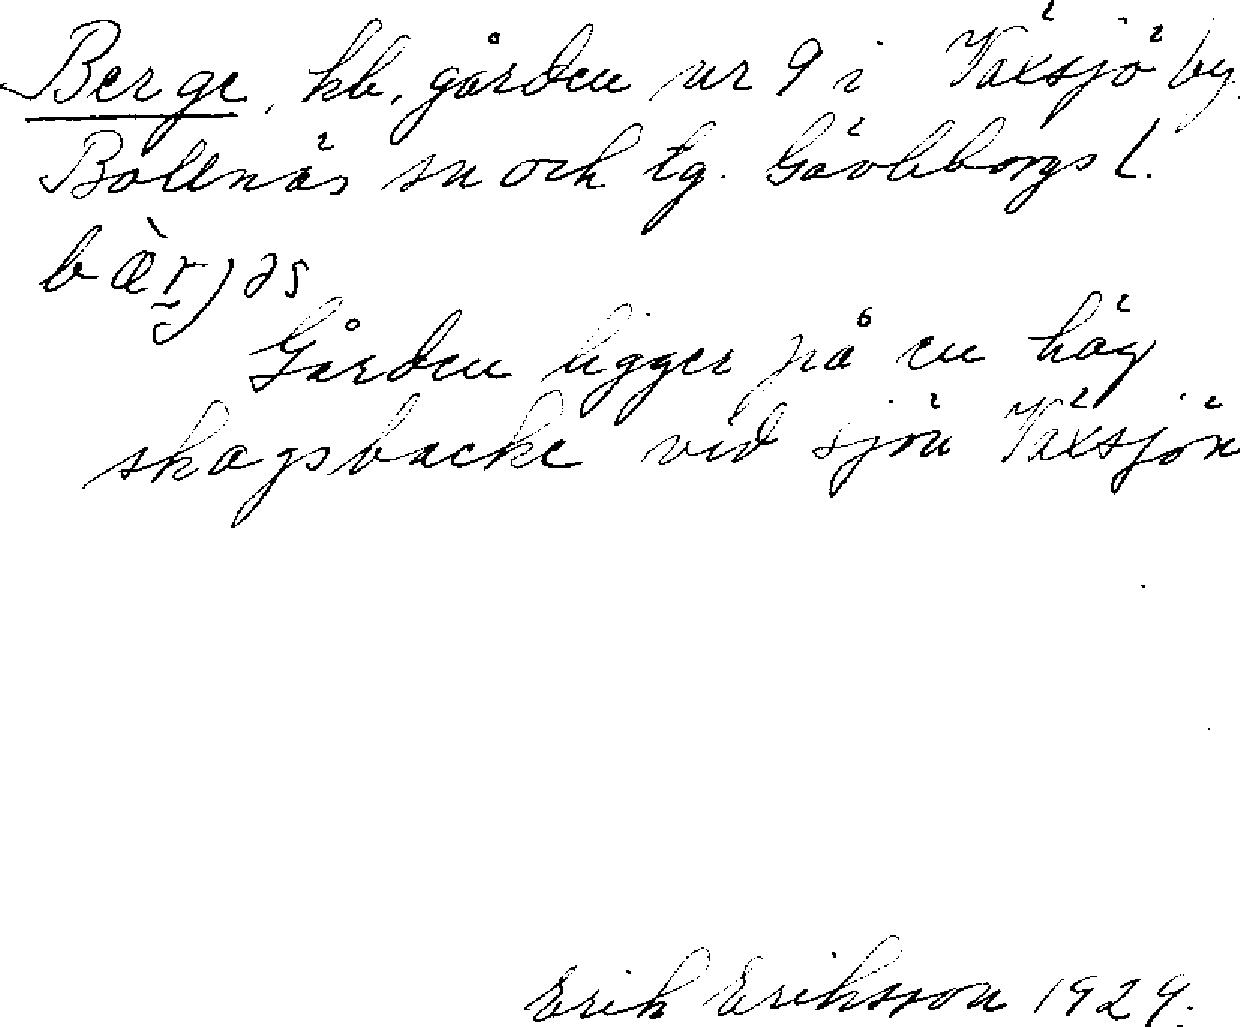 Berge, kb, gården nr 9 i Växsjö by.
Bollnäs sn och tg. Gävleborgs l.
bæ̀r̰jəs
Gården ligger på en hög
skogsbacke vid sjön Växsjön
Erik Eriksson 1929.